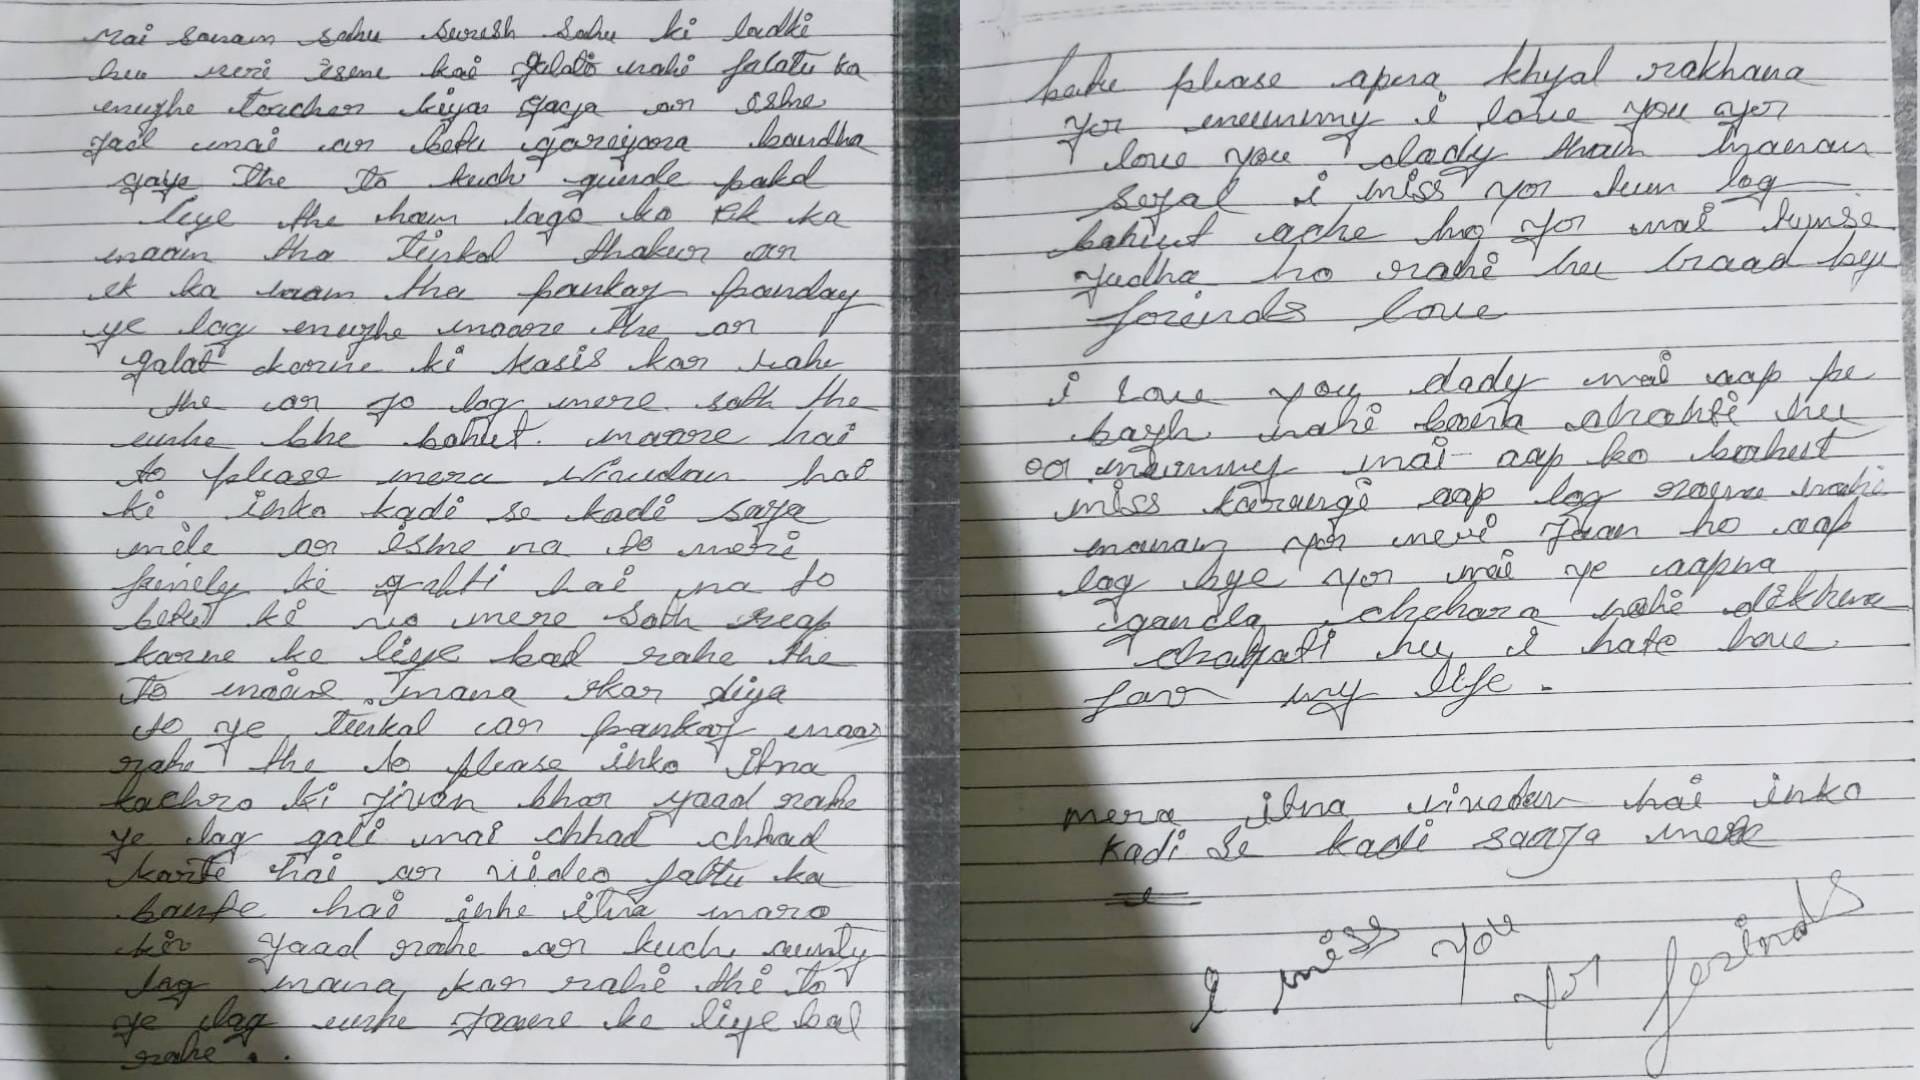 mai sanam sahu suresh sahu ki ladki
hu meri isme koi galati nahi falatu ka
mujhe toucher kiya gaya or isme
jail mai or betu gareiyara bandha
gaye the to kuch gunde pakd
liye the ham logo ko ek ka
naam tha tinkal thakur or
ek ka naam tha pankaj panday
ye log mujhe maare the or
galat karne ki kosis kar rahe
the or jo log mere sath the
unhe bhe bahut maare hai
to please mera nivedan hai
ki inko kadi se kadi saja
mile or isme na to meri
femily ki galti hai na to
betu ki vo mere sath reap
karne ke liye bol rahe the
to maine mana kar diya
to ye tinkal or pankaj maar
rahe the to please inko itna
kachro ki jivan bhar yaad rahe
ye log gali mai chhad chhad
karte hai or video faltu ka
bante hai inhe itna maro
ki yaad rahe or kuch aunty
log mana kar rahi thi to
ye log unhe jaane ke liye bol
rahe . .
babu please apna khyal rakhana
yor mummy i love you yor
love you dady
i miss yor tum log
bahut ache ho yor mai tumse
judha ho rahi hu braad by
foriends love
i love you dady mai aap pe
bojh nahi banna chahti hu
or mummy mai aap ko bahut
miss karungi aap log rona nahi
yor meri jaan ho aap
log bye yor mai ye aapna
ganda chehara nahi dikhna
chahati hu I hate love
for my life .
mera itna nivedan hai inko
kadi se kadi saaja mele
I miss you
yor ferinds